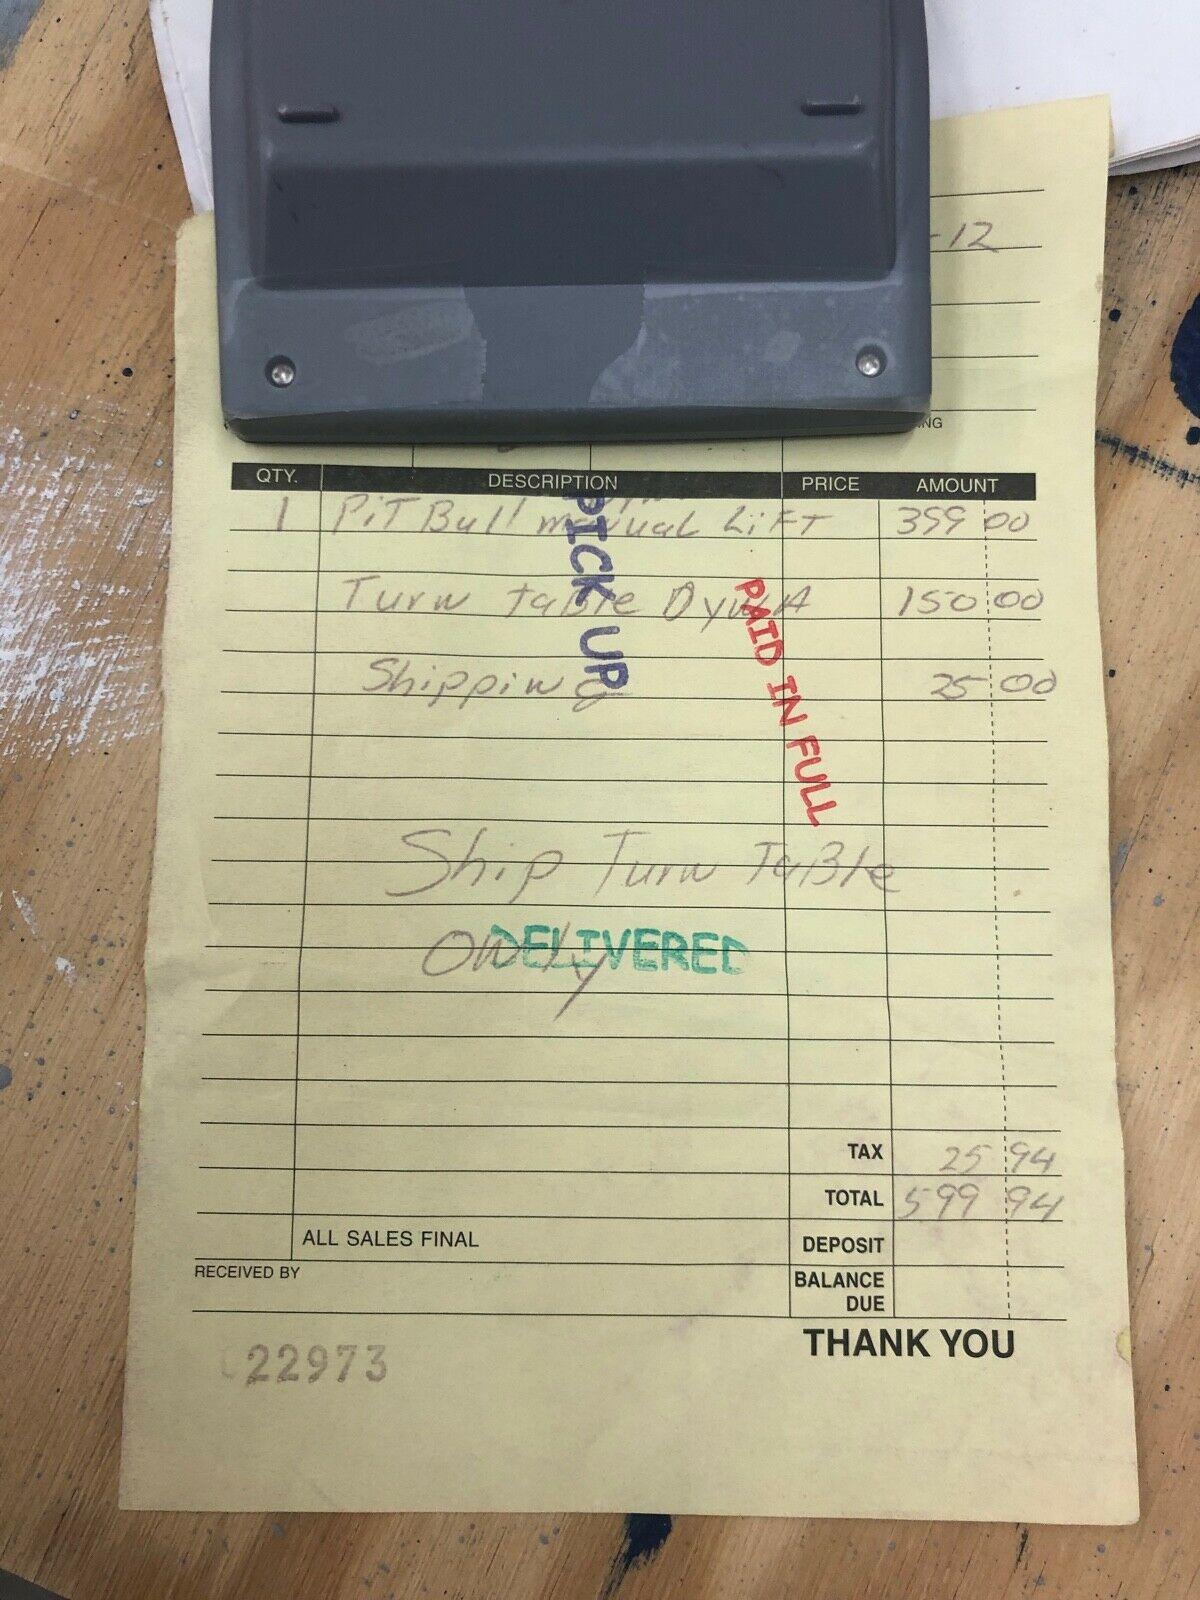 -12
NG
QTY. DESCRIPTION PRICE AMOUNT
1 PiT Bull manual LiFT 399 00
Turn table DynA 150 00
Shipping 25 00
PICK UP
PAID IN FULL
Ship Turn TaBle
Only
DELIVERED
TAX 25 94
TOTAL 599 94
ALL SALES FINAL DEPOSIT
RECEIVED BY BALANCE
DUE
THANK YOU
22973